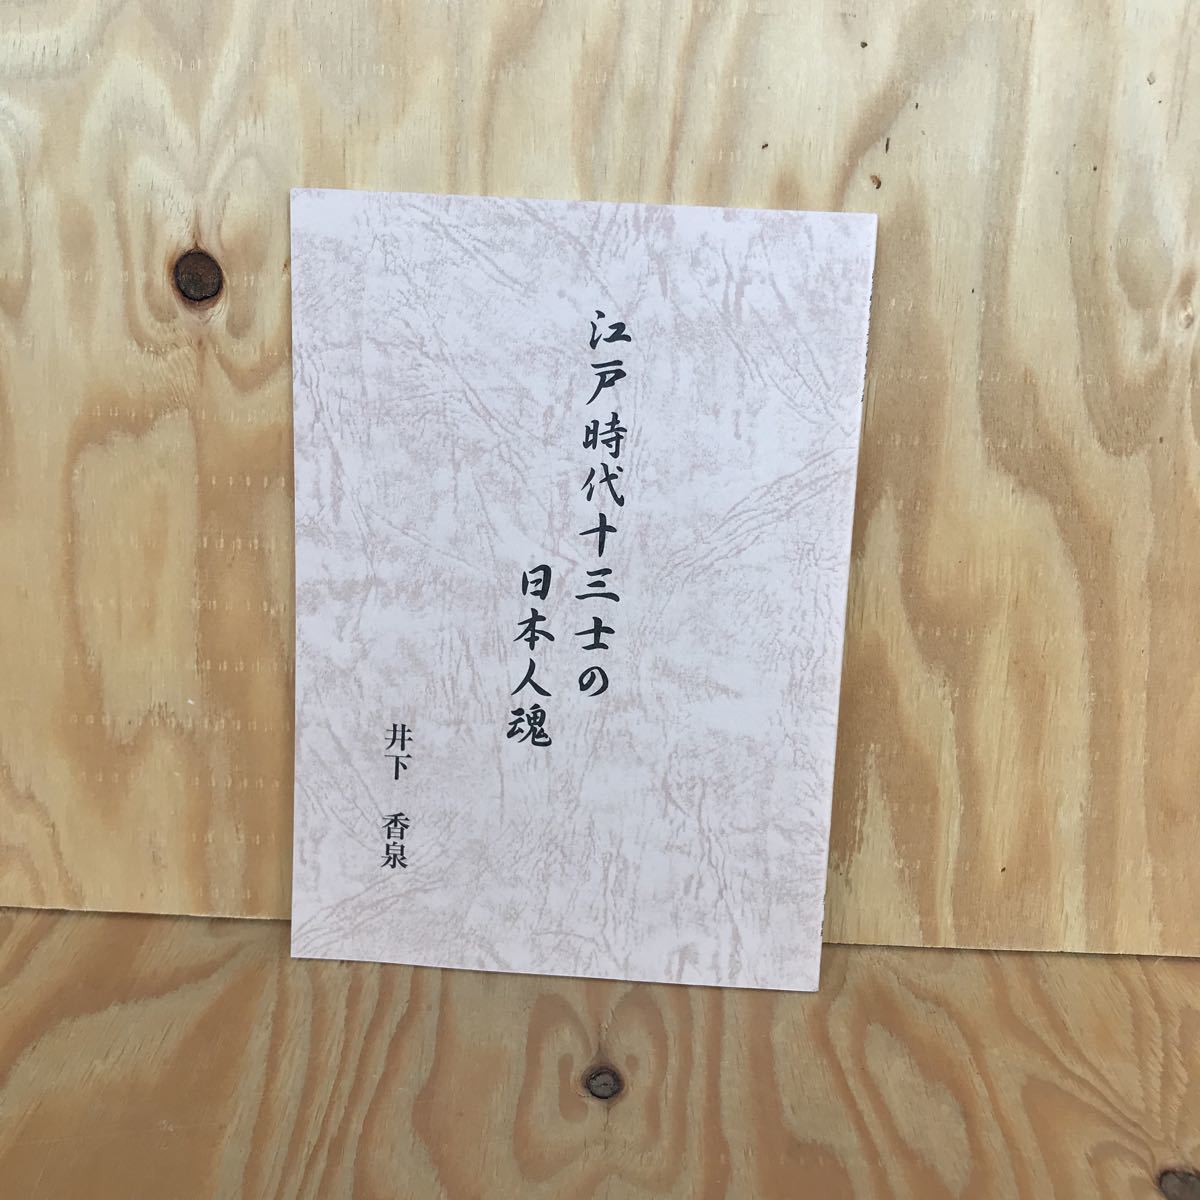 江戸時代十三士の
日本人魂
井下 香泉